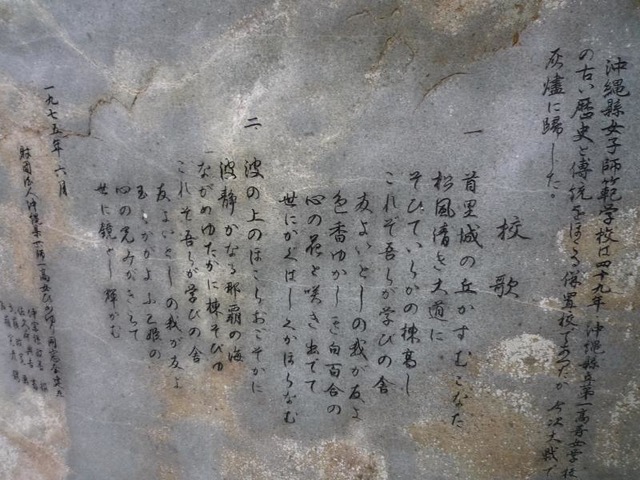 沖縄縣女子師範学校は四十九年 沖縄縣立第一高等女学校
の古い歴史と傳統をほこる併置校であったが 今次大戦で
灰燼に帰した。
校歌
一
首里城の丘かすむこなた
松風清き大道に。
そびていらかの棟高し
これぞ吾らが学びの舎
友よいとしの我が友よ
色香ゆかしき白百合の
心の花と咲き出でて
世にかぐはしくかほらなむ
二
波の上のほこらおごそかに
波静かなる那覇の海
ながめゆたかに棟そびゆ
これぞ吾らが学びの舎
友よいとしの我が友よ
心の光みがきもて
世に鏡とし輝かむ
一九七五年六月
財団法人沖縄